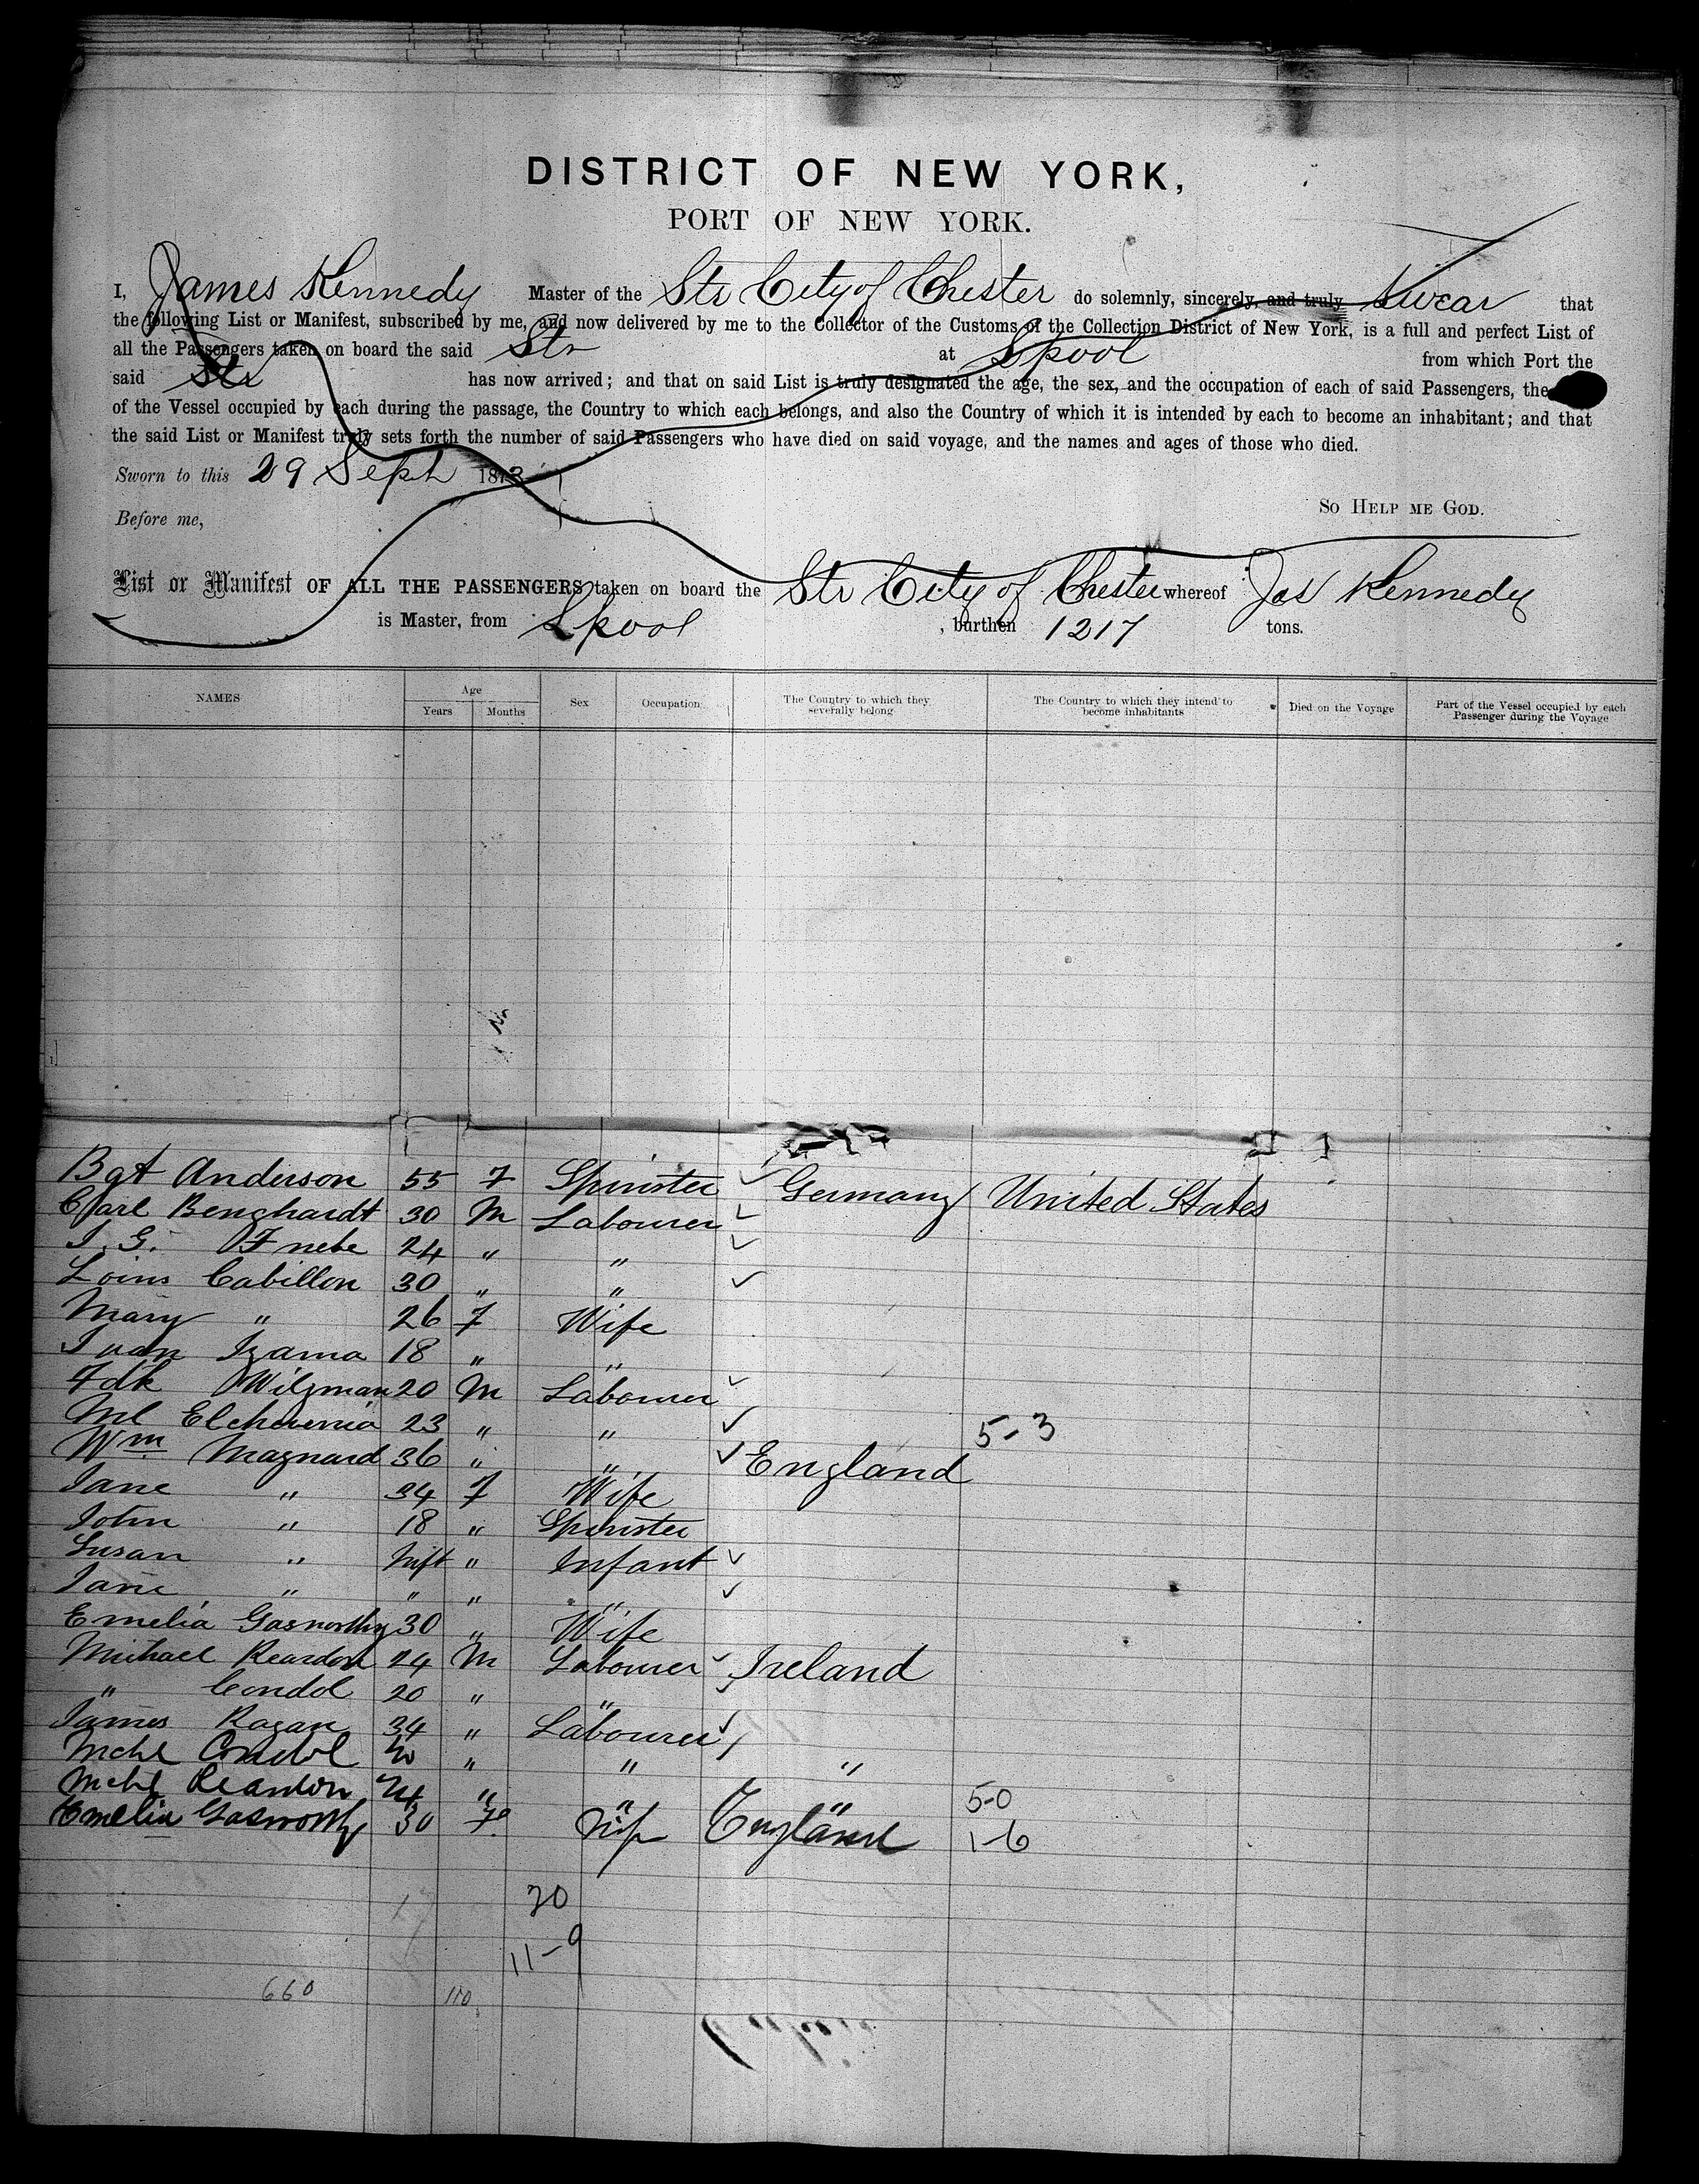 DISTRICT OF NEW YORK,
PORT OF NEW YORK.
I, James Kennedy Master of the Str City of Chester do solemnly, sincerely, and truly Swear that
the following List or Manifest, subscribed by me, and now delivered by me to the Collector of the Customs of the Collection District of New York, is a full and perfect List of
all the Passengers taken on board the said Str at Lpool from which Port the
said Str has now arrived; and that on said List is truly designated the age, the sex, and the occupation of each of said Passengers, the
of the Vessel occupied by each during the passage, the Country to which each belongs, and also the Country of which it is intended by each to become an inhabitant; and that
the said List or Manifest truly sets forth the number of said Passengers who have died on said voyage, and the names and ages of those who died.
Sworn to this 29 Sept 1873
So Help me God.
Before me,
List or Manifest OF ALL THE PASSENGERS taken on board the Str City of Chester whereof Jas Kennedy
is Master, from Lpool , burthen 1217 tons.
NAMES Age Years Months Sex Occupation The Country to which they severally belong The Country to which they intend to become inhabitants Died on the Voyage Part of the Vessel occupied by each Passenger during the Voyage
Bgt Anderson 55 F Spinster Germany United States
Carl Benghardt 30 M Labourer
24 " "
Louis Cabillon 30 " "
Mary " 26 F Wife
Juan Izama 18 " "
Fdk Wilzman 20 M Labourer
Ml Elcheverria 23 " " 5-3
Wm Magnard 36 " " England
Jane " 34 F Wife
John " 18 " Spinster
Susan " Inft " Infant
Jane " " " "
Emelia Gasworthy 30 " Wife
Michael Reardon 24 M Labourer Ireland
" Condol 20 " "
James Ragan 34 " Labourer
Mchl Condol 20 " " "
Mchl Reardon 24 " " " 5-0
Emelia Gasworthy 30 F Wife England 1-6
20
17
11-9
660 110